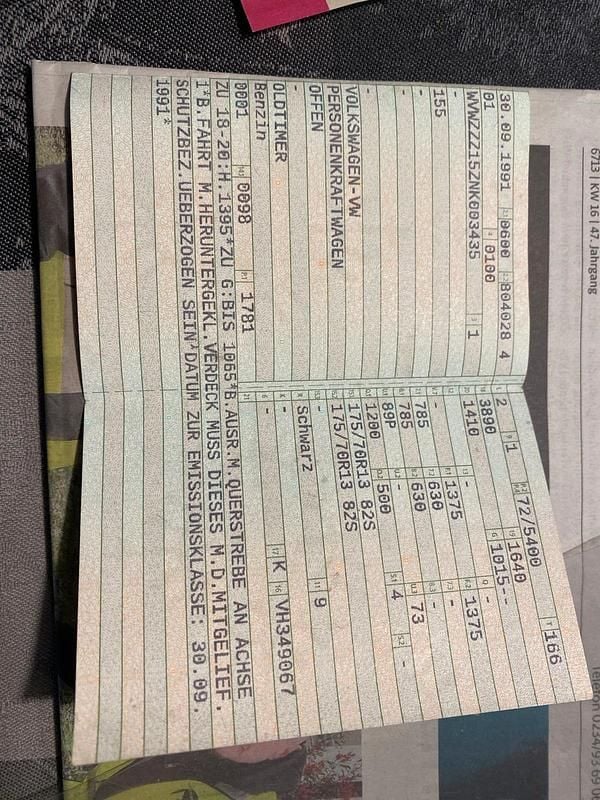 30.09.1991 0600 804028 4
01 0100
WVWZZZ15ZNK003435 1
-
155
-
-
VOLKSWAGEN-VW
PERSONENKRAFTWAGEN
OFFEN
-
OLDTIMER
Benzin
0001 0098 1781
2 1 72/5400 166
3890 1640
1410 1015--
- 1375 - 1375
785 630 -
785 630 - 73
89P - 4 -
1200 500
175/70R13 82S
175/70R13 82S
-
Schwarz 9
- K VH349067
-
ZU 18-20:H.1395*ZU G:BIS 1065*B.AUSR.M.QUERSTREBE AN ACHSE
1*B.FAHRT M.HERUNTERGEKL.VERDECK MUSS DIESES M.D.MITGELIEF.
SCHUTZBEZ.UEBERZOGEN SEIN*DATUM ZUR EMISSIONSKLASSE: 30.09.
1991*
6713 | KW 16 | 47. Jahrgang